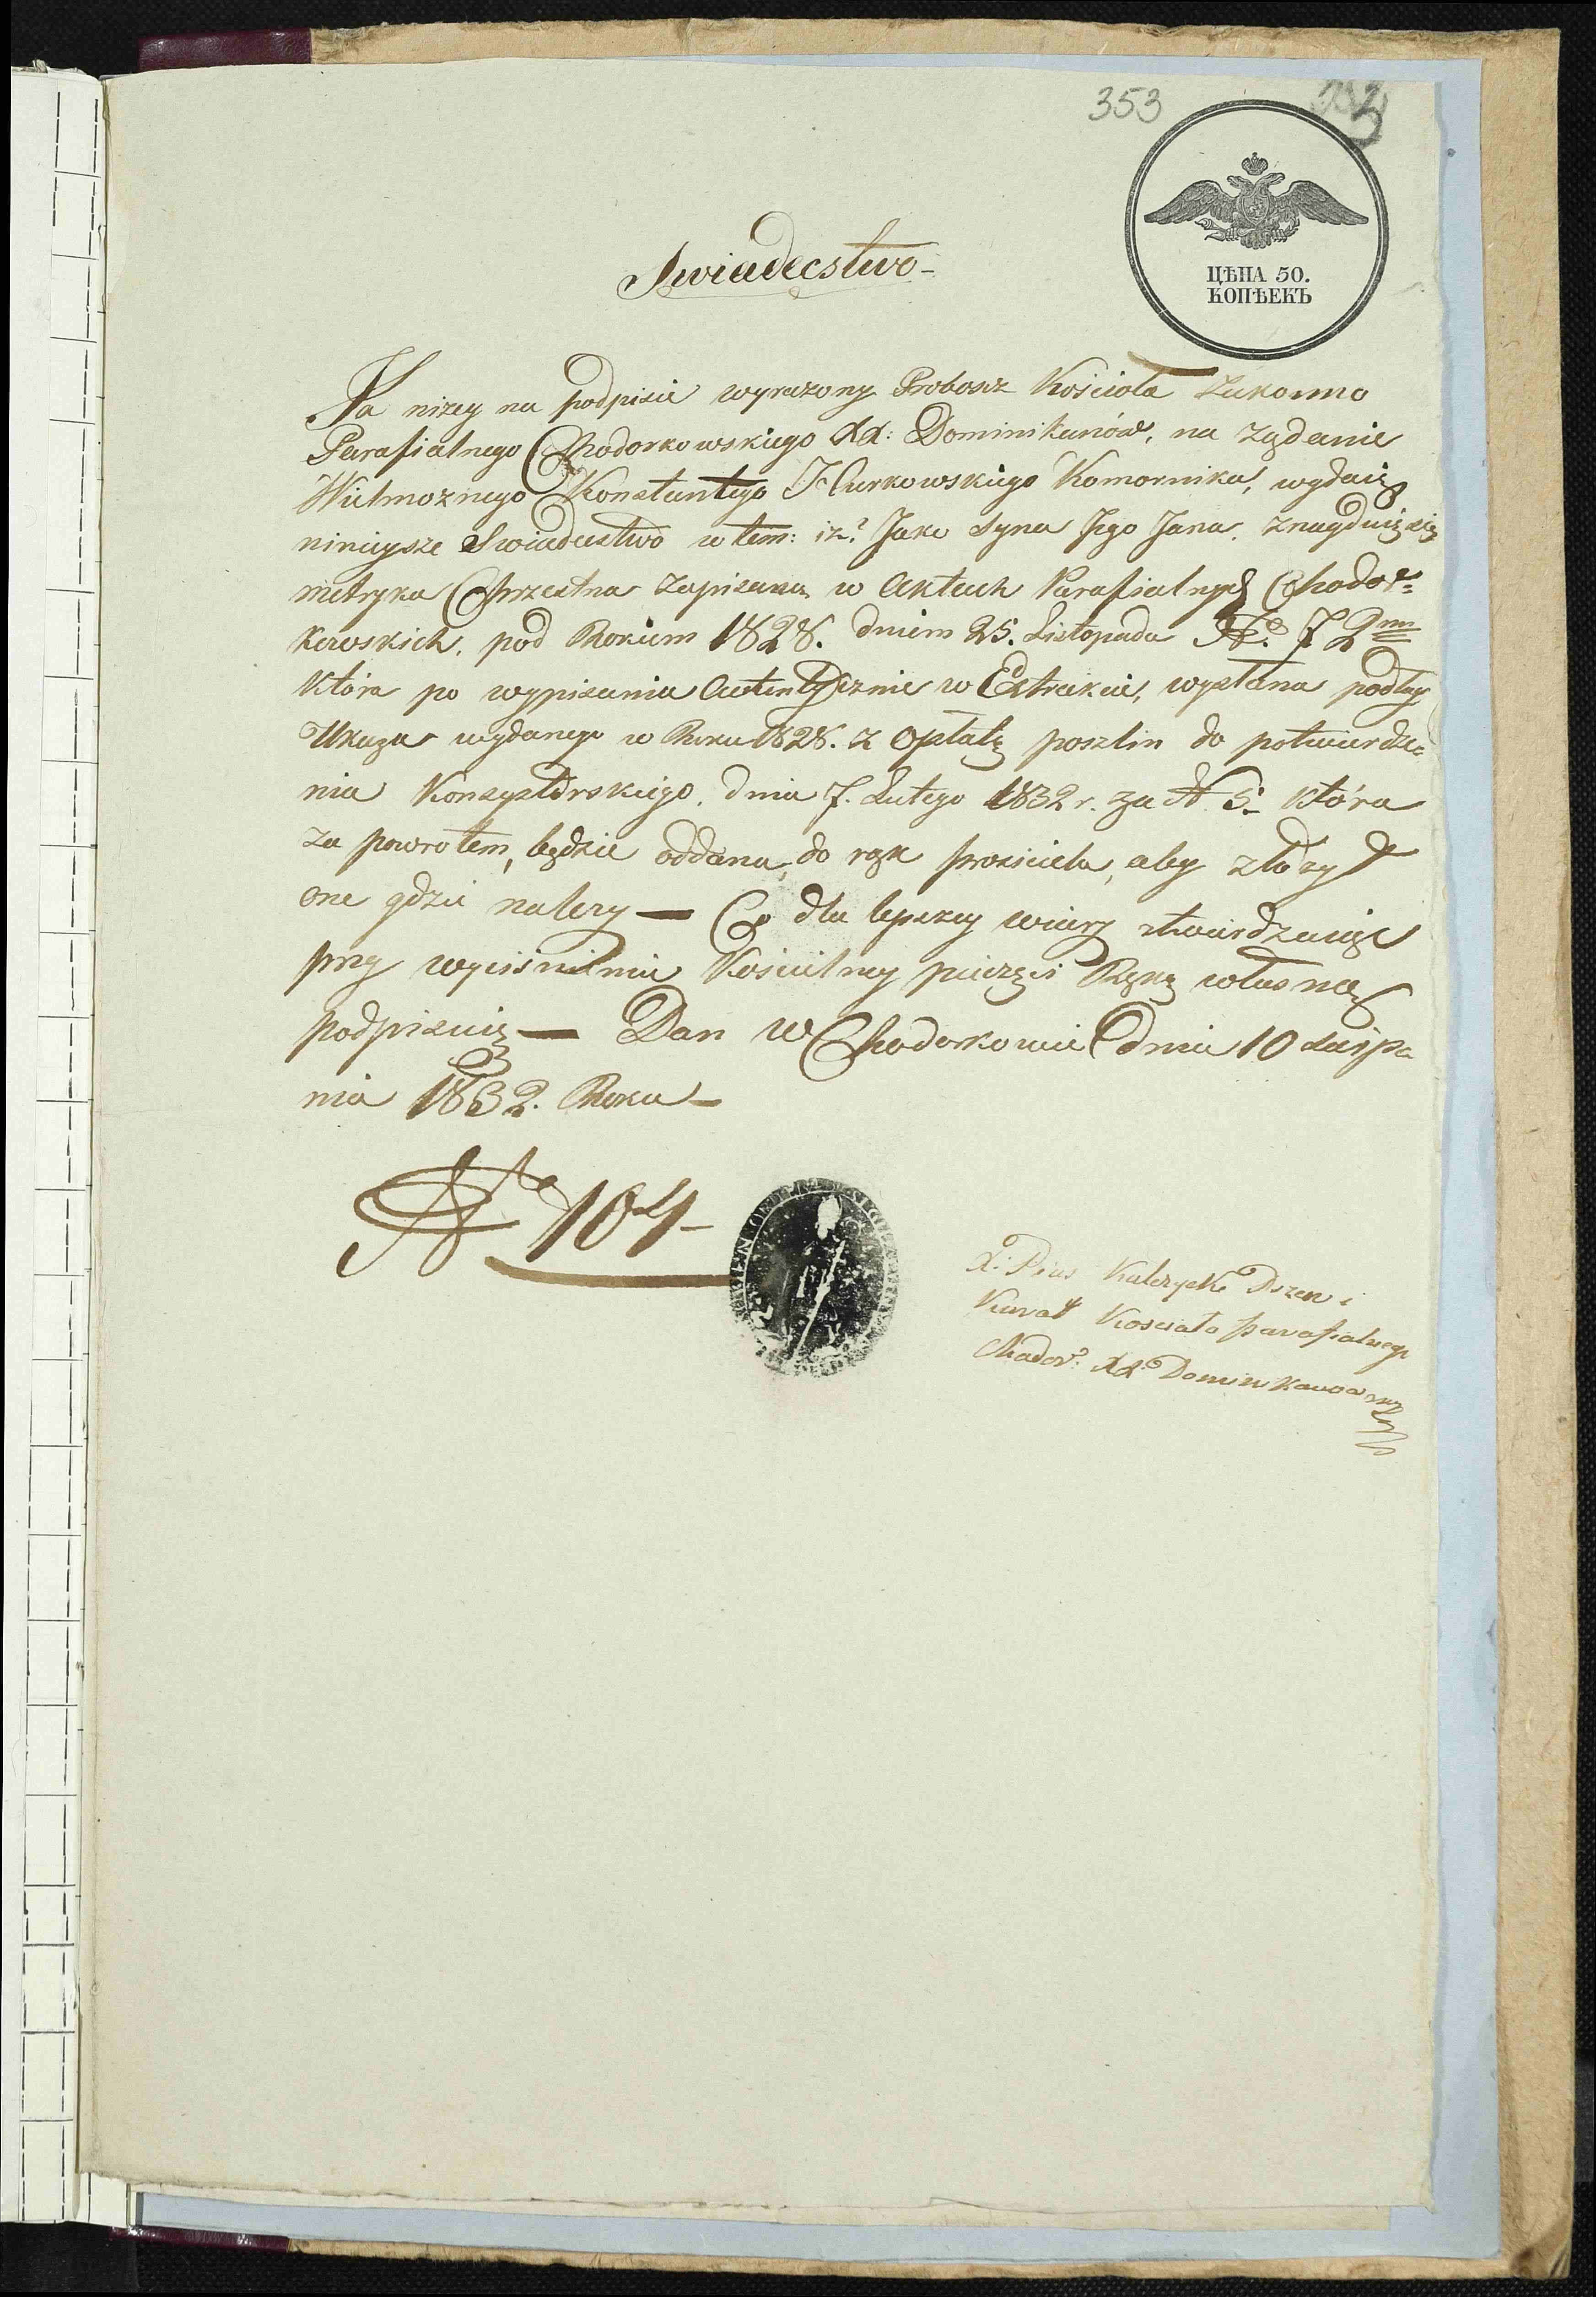 353
ЦѢНА 50.
КОПѢЕКЪ
Swiadectwo
Ja nizey na podpisie wyrazony Probosz Kościoła Zakonno
Parafialnego Chodorkowskiego XX: Dominikanów, na Ządanie
Wielmoznego Konstantego Komornika, wydaię
ninieysze Swiadectwo w tem: iz Jako Syna Jego Jana, znayduię się
metryka Chrzestna zapisana w Aktach Parafialnych Chodor=
kowskich, pod Rokiem 1828. dniem 25. Listopada No. 72
Która po wypisaniu Autentycznie w Extrakcie, wysłana podług
Ukazu wydanego w Roku 1828. z Opłatą poszlin do potwierdze=
nia Konsystorskiego, dnia 7. Lutego 1832 r. za N 5. która
za powrotem, będzie oddana, do rąk prosiciela, aby złozył
one gdzie nalezy — Co dla lepszey wiary stwierdzaiąc
przy wyciśnieniu Kościelney pieczęci Ręką własną
podpisuię — Dan w Chodorkowie dnia 10 Sierpa
nia 1832. Roku —
No 104
X: Pius Przeor i
Kurat Koscioła parafialnego
Chodor: XX Dominikanow